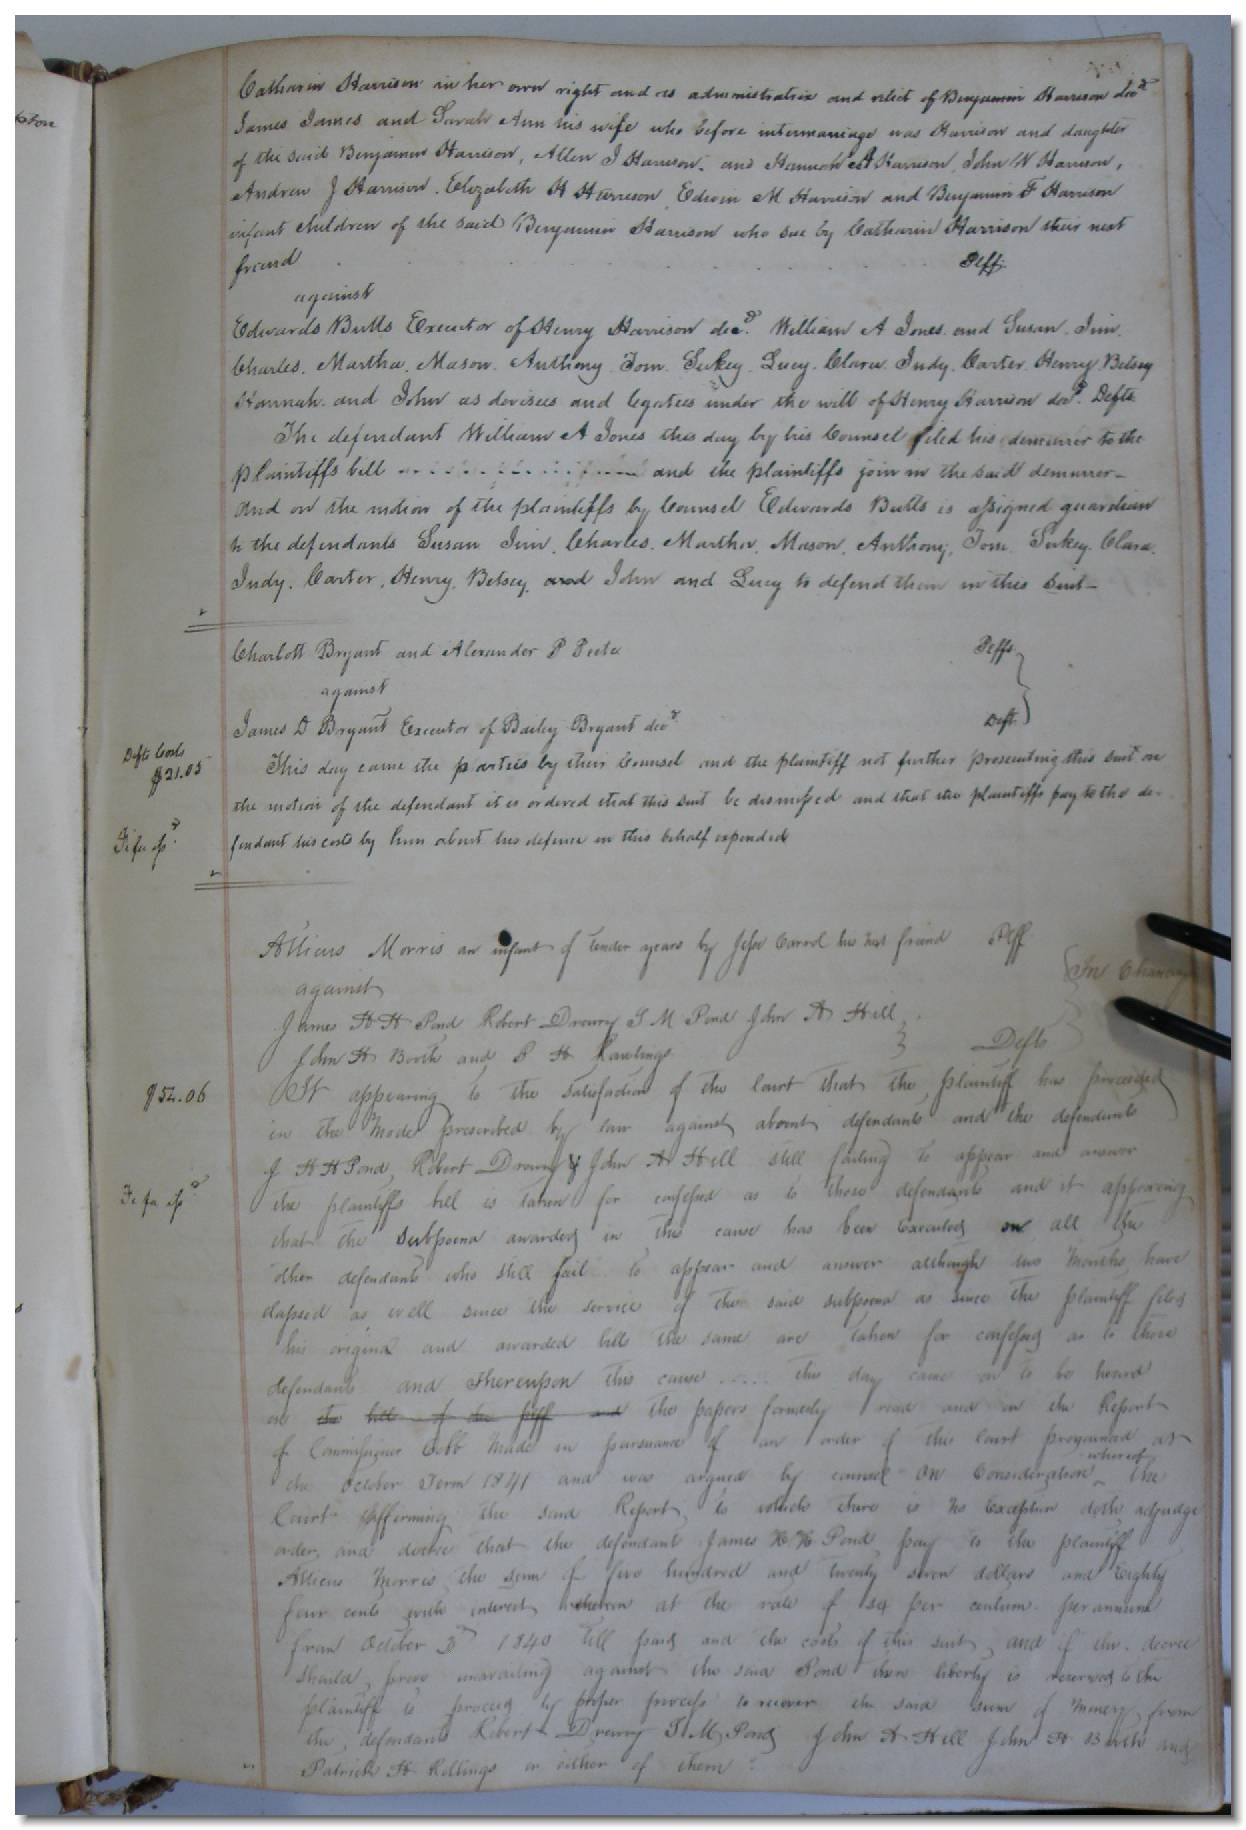 Catharin Harrison in her own right and as administratrix and relict of Benjamin Harrison decd
James James and Sarah Ann his wife who before intermarriage was Harrison and daughter
of the said Benjamin Harrison, Allen J Harrison. and Hannah A Harrison, John W Harrison,
Andrew J Harrison. Elizabeth H Harrison, Edwin M Harrison and Benjamin F Harrison
infant children of the said Benjamin Harrison who sue by Catharin Harrison their next
friend Plff.
against
Edwards Butts Executor of Henry Harrison decd. William A Jones. and Susan. Jim.
Charles. Martha. Mason. Anthony. Tom. Sukey. Lucy. Clara. Judy. Carter. Henry. Betsey
Hannah. and John as devisees and legatees under the will of Henry Harrison decd. Defts
The defendant William A Jones this day by his Counsel filed his demurrer to the
plaintiffs bill and the plaintiffs join in the said demurrer-
and on the motion of the plaintiffs by Counsel Edwards Butts is assigned guardian
to the defendants Susan. Jim. Charles. Martha. Mason. Anthony. Tom. Sukey. Clara.
Judy. Carter. Henry. Betsey. and John and Lucy to defend them in this Suit-
Charlott Bryant and Alexander P Plffs
against
James D Bryant Executor of Bailey Bryant decd Deft.
Defts Costs
$21.05
This day came the parties by their Counsel and the plaintiff not further prosecuting this suit on
the motion of the defendant it is ordered that this suit be dismissed and that the plaintiffs pay to the de-
Fi fa isd
fendant his costs by him about his defence in this behalf expended
Atticus Morris an infant of tender years by Jesse Carrol his next friend Plff
against In Chancery
James H H Pond Robert Drewry T M Pond John A Hill
John H Booth and P H Rawlings Defts
$52.06
It appearing to the satisfaction of the court that the plaintiff has proceeded
in the Mode prescribed by law against absent defendants and the defendants
J H H Pond, Robert Drewry & John A Hill still failing to appear and answer
Fi fa isd
the plaintiffs bill is taken for confessed as to those defendants and it appearing
that the Subpoena awarded in this cause has been executed on all the
other defendants who still fail to appear and answer although two months have
elapsed as well since the service of the said subpoena as since the plaintiff filed
his original and awarded bills the same are taken for confessed as to those
defendants and thereupon this cause this day came on to be heard
on the bill of the plff and the papers formerly read and on the Report
of Commissioner Cobb made in pursuance of an order of the Court pronounced at
the October Term 1841 and was argued by counsel On Consideration whereof the
Court Affirming the said Report, to which there is no Exception doth adjudge
order, and decree that the defendant James H H Pond, pay to the plaintiff
Atticus Morris the sum of five hundred and twenty seven dollars and Eighty
four cents with interest thereon at the rate of six per centum per annum
from October 1840 till paid and the costs of this suit, and if the decree
should, prove unavailing against the said Pond then liberty is reserved to the
plaintiff to proceed by proper process to recover the said sum of Money from
the defendants Robert Drewry T. M. Pond John A Hill John H Booth and
Patrick H Rollings or either of them